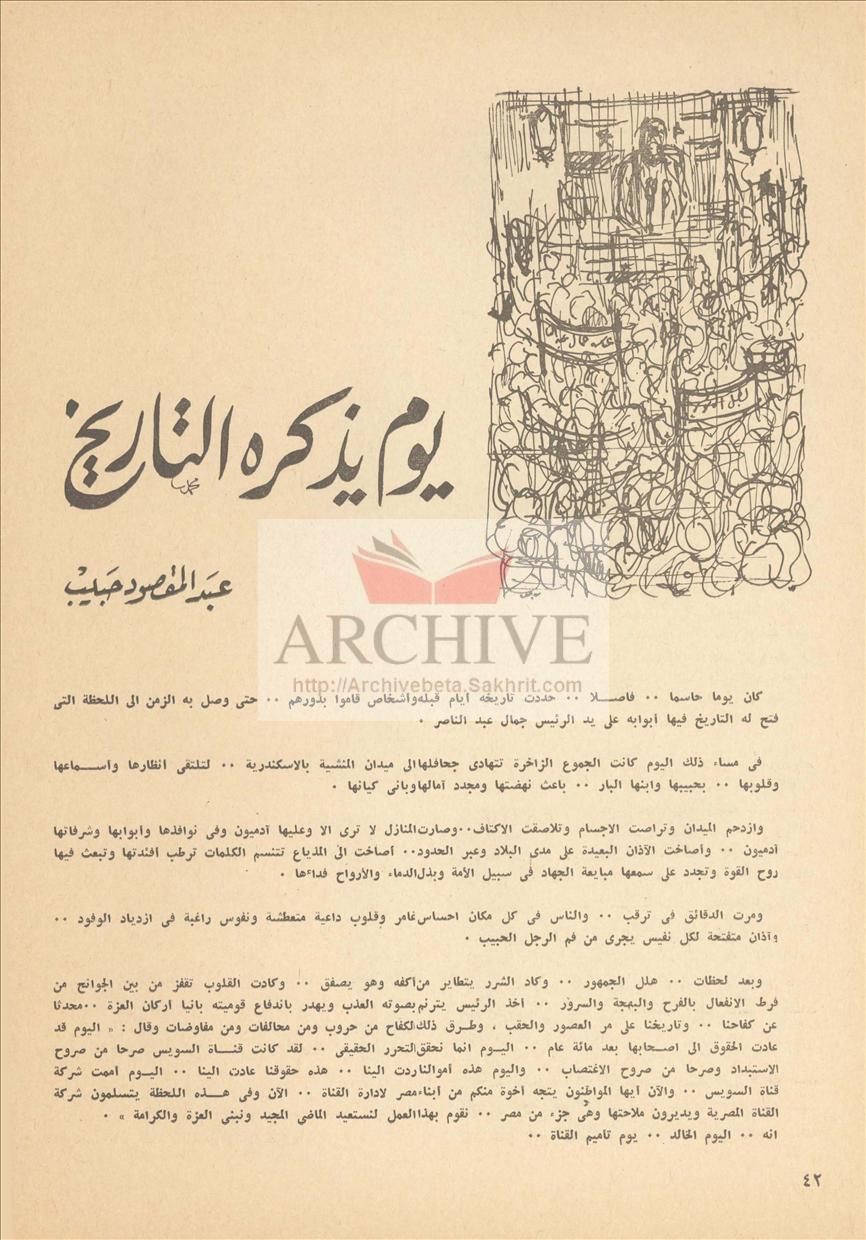 يوم يذكره التاريخ
عبد المقصود حبيب
ARCHIVE
http://Archivebeta.Sakhrit.com
كان يوما حاسما ٠٠ فاصــلا ٠٠ حددت تاريخه أيام قبله وأشخاص قاموا بدورهم ٠٠ حتى وصل به الزمن الى اللحظة التى
فتح له التاريخ فيها أبوابه على يد الرئيس جمال عبد الناصر ٠
فى مساء ذلك اليوم كانت الجموع الزاخرة تتهادى جحافلها الى ميدان المنشية بالاسكندرية ٠٠ لتلتقى أنظارها وأســماعها
وقلوبها ٠٠ بحبيبها وابنها البار ٠٠ باعث نهضتها ومجدد آمالها وبانى كيانها ٠
وازدحم الميدان وتراصت الاجسام وتلاصقت الاكتاف ٠٠ وصارت المنازل لا ترى الا وعليها آدميون وفى نوافذها وأبوابها وشرفاتها
آدميون ٠٠ وأصاخت الآذان البعيدة على مدى البلاد وعبر الحدود ٠٠ أصاخت الى المذياع تتنسم الكلمات ترطب أفئدتها وتبعث فيها
روح القوة وتجدد على سمعها مبايعة الجهاد فى سبيل الأمة وبذل الدماء والأرواح فداءها ٠
ومرت الدقائق فى ترقب ٠٠ والناس فى كل مكان احساس غامر وقلوب داعية متعطشة ونفوس راغبة فى ازدياد الوفود ٠٠
وآذان متفتحة لكل نفيس يجرى من فم الرجل الحبيب ٠
وبعد لحظات ٠٠ هلل الجمهور ٠٠ وكاد الشرر يتطاير من أكفه وهو يصفق ٠٠ وكادت القلوب تقفز من بين الجوانح من
فرط الانفعال بالفرح والبهجة والسرور ٠٠ أخذ الرئيس يترنم بصوته العذب ويهدر باندفاع قوميته بانيا أركان العزة ٠٠ محدثا
عن كفاحنا ٠٠ وتاريخنا على مر العصور والحقب ، وطــرق ذلك الكفاح من حروب ومن محالفات ومن مفاوضات وقال : « اليوم قد
عادت الحقوق الى اصــحابها بعد مائة عام ٠٠ اليــوم انما نحقق التحرر الحقيقى ٠٠ لقد كانت قنــاة السويس صرحا من صروح
الاستبداد وصرحا من صروح الاغتصاب ٠٠ واليوم هذه أموالنا ردت الينا ٠٠ هذه حقوقنا عادت الينا ٠٠ اليــوم أممت شركة
قناة السويس ٠٠ والآن أيها المواطنون يتجه أخوة منكم من أبناء مصر لادارة القناة ٠٠ الآن وفى هــذه اللحظة يتسلمون شركة
القناة المصرية ويديرون ملاحتها وهى جزء من مصر ٠٠ نقوم بهذا العمل لنستعيد الماضى المجيد ونبنى العزة والكرامة » ٠
انه ٠٠ اليوم الخالد ٠٠ يوم تأميم القناة ٠٠
٤٢